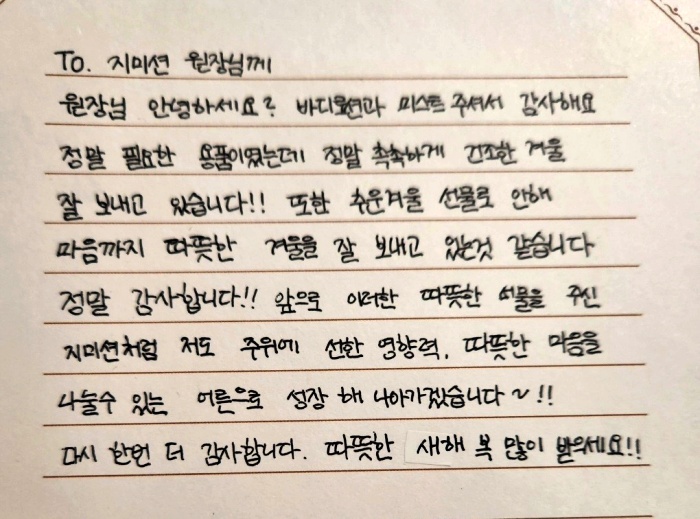 To. 지미션 원장님께
원장님 안녕하세요? 바디로션과 미스트 주셔서 감사해요
정말 필요한 용품이였는데 정말 촉촉하게 건조한 겨울
잘 보내고 있습니다!! 또한 추운겨울 선물로 인해
마음까지 따뜻한 겨울을 잘 보내고 있는것 같습니다
정말 감사합니다!! 앞으로 이러한 따뜻한 선물을 주신
지미션처럼 저도 주위에 선한 영향력, 따뜻한 마음을
나눌수 있는 어른으로 성장 해 나아가겠습니다~!!
다시 한번 더 감사합니다. 따뜻한 새해 복 많이 받으세요!!